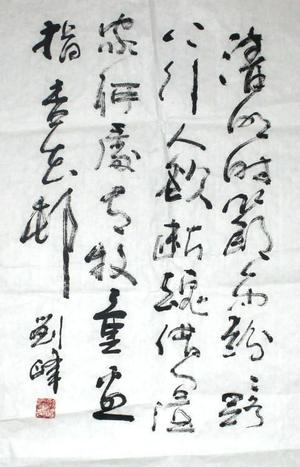 清明时节雨纷〻路
上行人欲断魂借问酒
家何处有牧童遥
指杏花村
刘峰